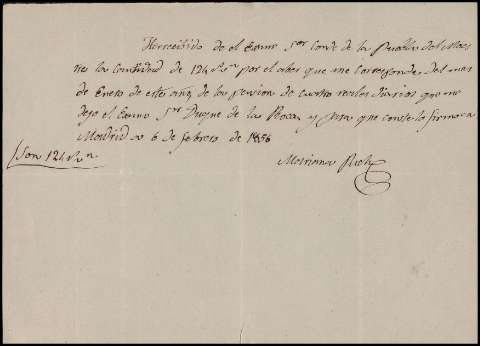 He recibido de el Exmo Sor Conde de la Puebla del Maes
tre la Cantidad de 124 rs vn por el aber que me corresponde del mes
de Enero de este año, de la pension de cuatro reales diarios que me
dejo el Exmo Sor Duque de las Rocas y para que conste lo firmo en
Madrid a 6 de febrero de 1856
Son 124 rs vn.
Mariana